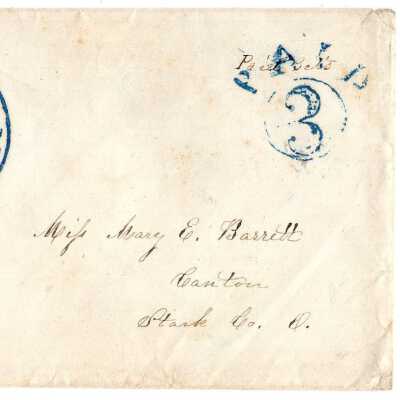 Paid 3cts
PAID
3
Miss Mary E. Barrett
Canton
Stark Co. O.